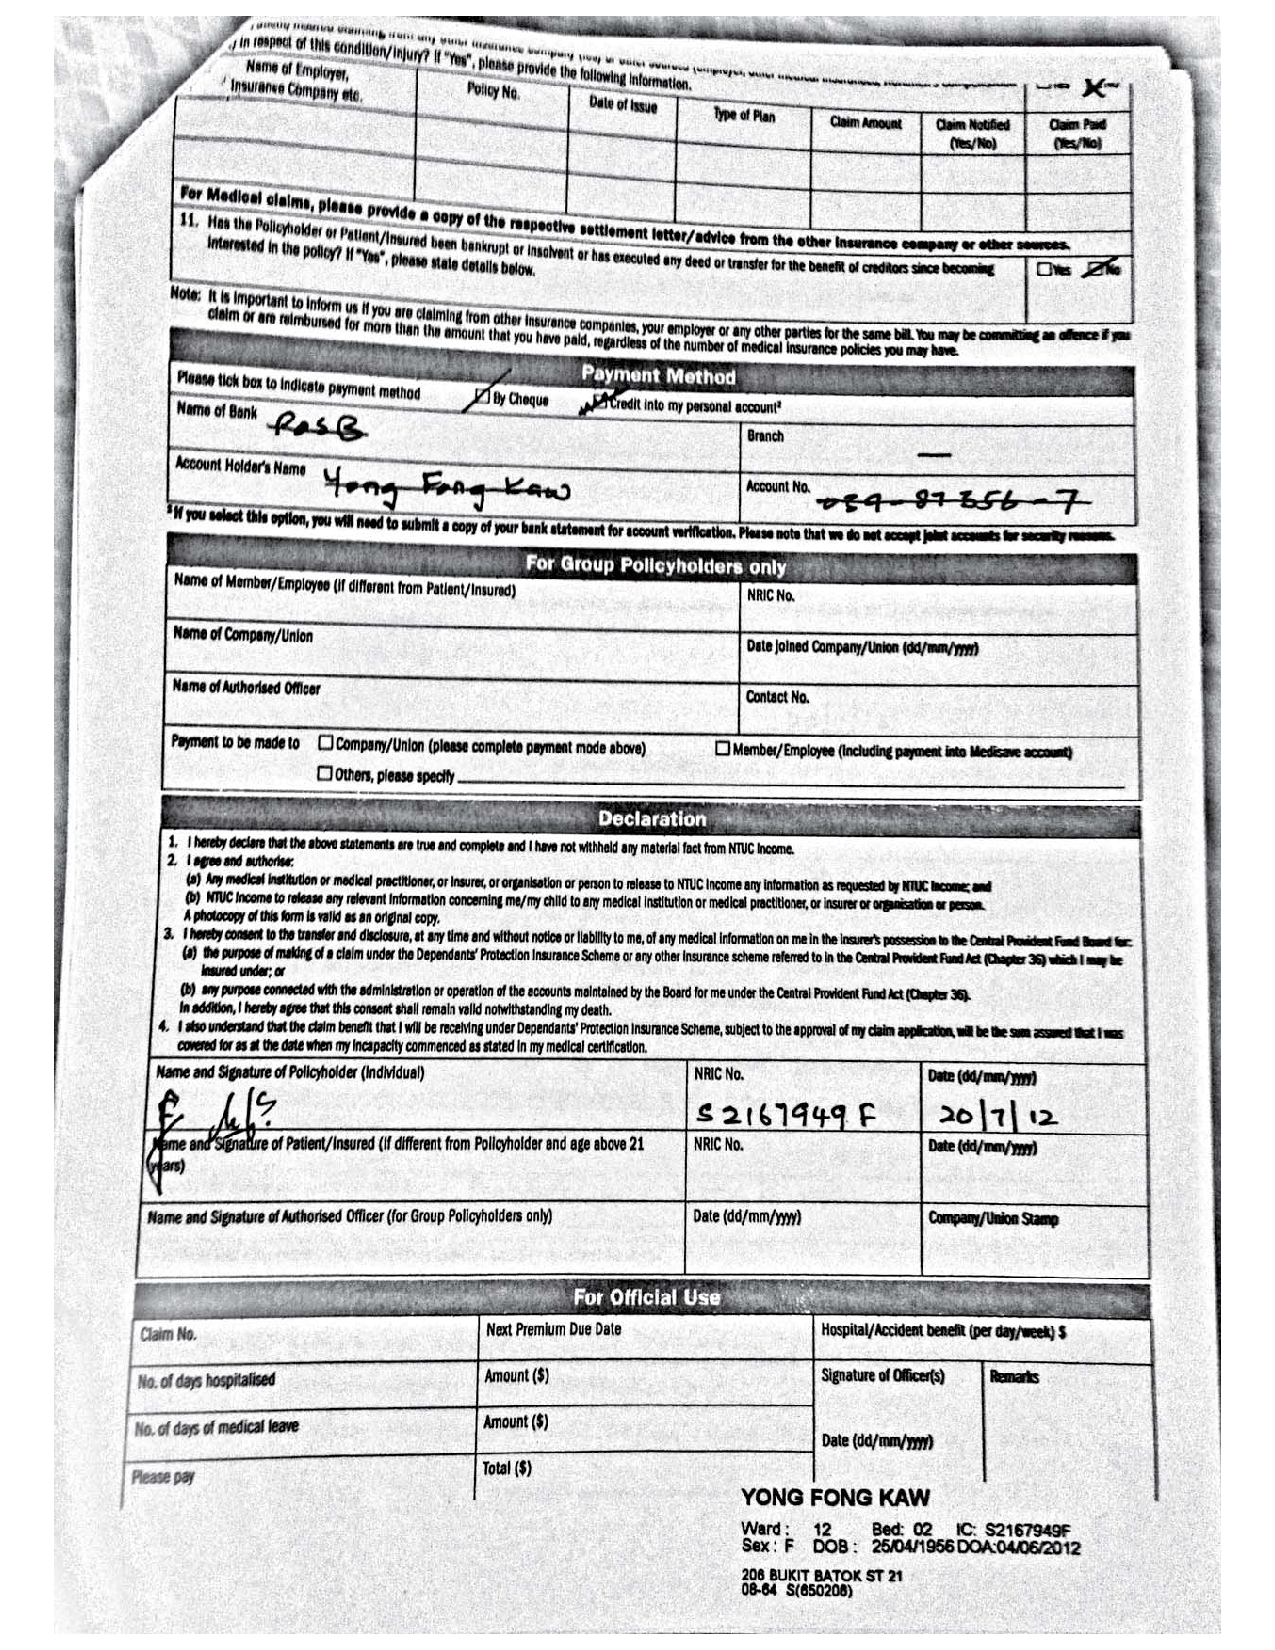 in respect of this condition/injury? If "Yes", please provide the following information.
Name of Employer, Insurance Company etc.
Policy No.
Date of Issue
Type of Plan
Claim Amount
Claim Notified (Yes/No)
Claim Paid (Yes/No)
For Medical claims, please provide a copy of the respective settlement letter/advice from the other insurance company or other sources.
11. Has the Policyholder or Patient/Insured been bankrupt or insolvent or has executed any deed or transfer for the benefit of creditors since becoming
interested in the policy? If "Yes", please state details below.
Yes No
Note: It is important to inform us if you are claiming from other insurance companies, your employer or any other parties for the same bill. You may be committing an offence if you
claim or are reimbursed for more than the amount that you have paid, regardless of the number of medical insurance policies you may have.
Payment Method
Please tick box to indicate payment method By Cheque Credit into my personal account²
Name of Bank POSB
Branch —
Account Holder's Name Yong Fong Kaw
Account No.
²If you select this option, you will need to submit a copy of your bank statement for account verification. Please note that we do not accept joint accounts for security reasons.
For Group Policyholders only
Name of Member/Employee (if different from Patient/Insured)
NRIC No.
Name of Company/Union
Date Joined Company/Union (dd/mm/yyyy)
Name of Authorised Officer
Contact No.
Payment to be made to Company/Union (please complete payment mode above) Member/Employee (including payment into Medisave account)
Others, please specify
Declaration
1. I hereby declare that the above statements are true and complete and I have not withheld any material fact from NTUC Income.
2. I agree and authorise:
(a) Any medical institution or medical practitioner, or insurer, or organisation or person to release to NTUC Income any information as requested by NTUC Income; and
(b) NTUC Income to release any relevant information concerning me/my child to any medical institution or medical practitioner, or insurer or organisation or person.
A photocopy of this form is valid as an original copy.
3. I hereby consent to the transfer and disclosure, at any time and without notice or liability to me, of any medical information on me in the insurer's possession to the Central Provident Fund Board for:
(a) the purpose of making of a claim under the Dependants' Protection Insurance Scheme or any other insurance scheme referred to in the Central Provident Fund Act (Chapter 36) which I may be
insured under; or
(b) any purpose connected with the administration or operation of the accounts maintained by the Board for me under the Central Provident Fund Act (Chapter 36).
In addition, I hereby agree that this consent shall remain valid notwithstanding my death.
4. I also understand that the claim benefit that I will be receiving under Dependants' Protection Insurance Scheme, subject to the approval of my claim application, will be the sum assured that I was
covered for as at the date when my incapacity commenced as stated in my medical certification.
Name and Signature of Policyholder (Individual)
NRIC No.
Date (dd/mm/yyyy)
S2167949F
20/7/12
Name and Signature of Patient/Insured (if different from Policyholder and age above 21
years)
NRIC No.
Date (dd/mm/yyyy)
Name and Signature of Authorised Officer (for Group Policyholders only)
Date (dd/mm/yyyy)
Company/Union Stamp
For Official Use
Claim No.
Next Premium Due Date
Hospital/Accident benefit (per day/week) $
No. of days hospitalised
Amount ($)
Signature of Officer(s)
Remarks
No. of days of medical leave
Amount ($)
Date (dd/mm/yyyy)
Please pay
Total ($)
YONG FONG KAW
Ward : 12 Bed: 02 IC: S2167949F
Sex : F DOB : 25/04/1956 DOA:04/06/2012
206 BUKIT BATOK ST 21
08-64 S(650206)